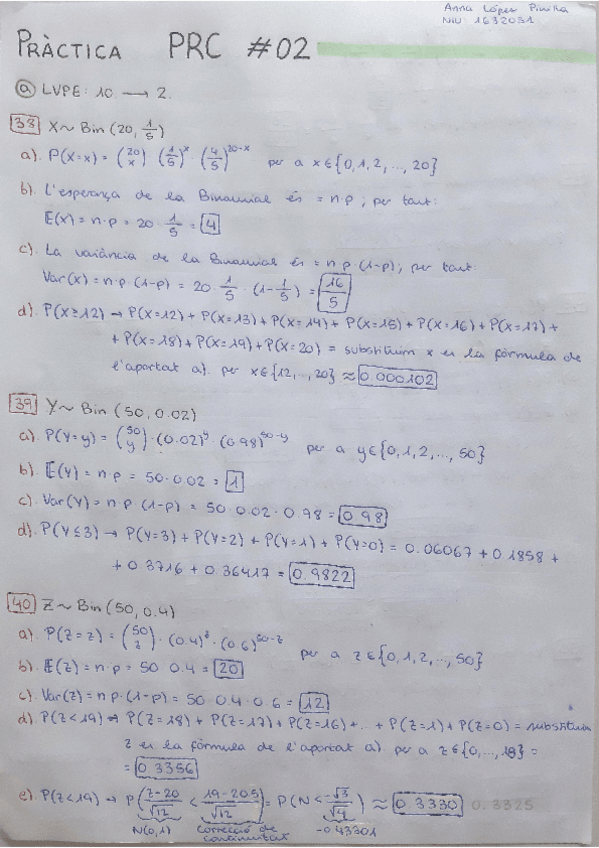 Anna López Pinilla
NIU: 1632031
PRÀCTICA PRC #02
ⓐ LVPE: 10 → 2.
38 X ~ Bin (20, 1/5)
a). P(X=x) = (20 x) · (1/5)^x · (4/5)^20-x per a x∈{0,1,2,...,20}
b). L'esperança de la Binomial és = n·p ; per tant:
E(X) = n·p = 20 · 1/5 = 4
c). La variància de la Binomial és = n·p·(1-p); per tant:
Var(X) = n·p·(1-p) = 20 · 1/5 · (1-1/5) = 16/5
d). P(X≥12) → P(X=12) + P(X=13) + P(X=14) + P(X=15) + P(X=16) + P(X=17) +
+ P(X=18) + P(X=19) + P(X=20) = substituim x en la fórmula de
l'apartat a). per x∈{12,..,20} ≈ 0.000102
39 Y ~ Bin (50, 0.02)
a). P(Y=y) = (50 y) · (0.02)^y · (0.98)^50-y per a y∈{0,1,2,...,50}
b). E(Y) = n·p = 50·0.02 = 1
c). Var(Y) = n·p·(1-p) = 50·0.02·0.98 = 0.98
d). P(Y≤3) → P(Y=3) + P(Y=2) + P(Y=1) + P(Y=0) = 0.06067 + 0.1858 +
+ 0.3716 + 0.36417 = 0.9822
40 Z ~ Bin (50, 0.4)
a). P(Z=z) = (50 z) · (0.4)^z · (0.6)^50-z per a z∈{0,1,2,...,50}
b). E(Z) = n·p = 50·0.4 = 20
c). Var(Z) = n·p·(1-p) = 50·0.4·0.6 = 12
d). P(Z<19) → P(Z=18) + P(Z=17) + P(Z=16) + ... + P(Z=1) + P(Z=0) = substituim
z en la fórmula de l'apartat a). per a z∈{0,...,18} =
= 0.3356
e). P(Z<19) → P(Z-20/√12 < 19-20.5/√12) = P(N < -√3/√4) ≈ 0.3330 0.3325
N(0,1) Correcció de continuitat -0.43301